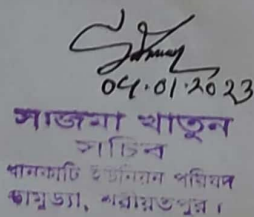 04.01.2023
সাজমা খাতুন
সচিব
ধানকাটি ইউনিয়ন পরিষদ
ডামুড্যা, শরীয়তপুর।